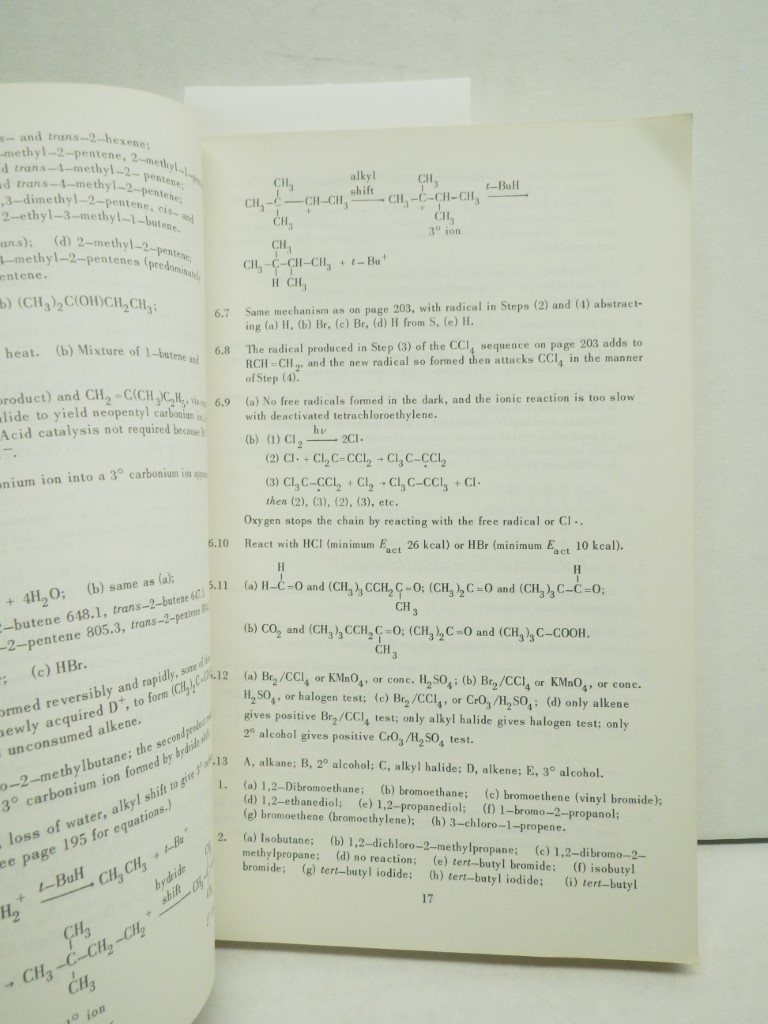 s– and trans–2–hexene;
–methyl–2–pentene, 2–methyl–1–
d trans–4–methyl–2– pentene;
d trans–4–methyl–2–pentene;
,3–dimethyl–2–pentene, cis– and
2–ethyl–3–methyl–1–butene.
ans); (d) 2–methyl–2–pentene;
4–methyl–2–pentenes (predominately
entene.
b) (CH₃)₂C(OH)CH₂CH₃;
heat. (b) Mixture of 1–butene and
product) and CH₂=C(CH₃)C₂H₅, via
alide to yield neopentyl carbonium
Acid catalysis not required because
nium ion into a 3° carbonium ion
+ 4H₂O; (b) same as (a);
2–butene 648.1, trans–2–butene
–2–pentene 805.3, trans–2–pentene
; (c) HBr.
ormed reversibly and rapidly, some of
newly acquired D⁺, to form
unconsumed alkene.
o–2–methylbutane; the second product
3° carbonium ion formed by hydride
loss of water, alkyl shift to give 3°
ee page 195 for equations.)
H₂⁺ t–BuH CH₃CH₃ + t–Bu⁺
hydride
shift
CH₃
→ CH₃–C–CH₂–CH₂⁺
CH₃
1° ion
CH₃ alkyl CH₃
CH₃–C–CH–CH₃ shift CH₃–C–CH–CH₃ t–BuH
CH₃ + + CH₃
3° ion
CH₃
CH₃–C–CH–CH₃ + t–Bu⁺
H CH₃
6.7 Same mechanism as on page 203, with radical in Steps (2) and (4) abstract-
ing (a) H, (b) Br, (c) Br, (d) H from S, (e) H.
6.8 The radical produced in Step (3) of the CCl₄ sequence on page 203 adds to
RCH=CH₂, and the new radical so formed then attacks CCl₄ in the manner
of Step (4).
6.9 (a) No free radicals formed in the dark, and the ionic reaction is too slow
with deactivated tetrachloroethylene.
hν
(b) (1) Cl₂ ⟶ 2Cl·
(2) Cl· + Cl₂C=CCl₂ → Cl₃C–ĊCl₂
(3) Cl₃C–ĊCl₂ + Cl₂ → Cl₃C–CCl₃ + Cl·
then (2), (3), (2), (3), etc.
Oxygen stops the chain by reacting with the free radical or Cl·.
6.10 React with HCl (minimum E_act 26 kcal) or HBr (minimum E_act 10 kcal).
H H
6.11 (a) H–C=O and (CH₃)₃CCH₂C=O; (CH₃)₂C=O and (CH₃)₃C–C=O;
CH₃
(b) CO₂ and (CH₃)₃CCH₂C=O; (CH₃)₂C=O and (CH₃)₃C–COOH.
CH₃
.12 (a) Br₂/CCl₄ or KMnO₄, or conc. H₂SO₄; (b) Br₂/CCl₄ or KMnO₄, or conc.
H₂SO₄, or halogen test; (c) Br₂/CCl₄, or CrO₃/H₂SO₄; (d) only alkene
gives positive Br₂/CCl₄ test; only alkyl halide gives halogen test; only
2° alcohol gives positive CrO₃/H₂SO₄ test.
.13 A, alkane; B, 2° alcohol; C, alkyl halide; D, alkene; E, 3° alcohol.
1. (a) 1,2–Dibromoethane; (b) bromoethane; (c) bromoethene (vinyl bromide);
(d) 1,2–ethanediol; (e) 1,2–propanediol; (f) 1–bromo–2–propanol;
(g) bromoethene (bromoethylene); (h) 3–chloro–1–propene.
2. (a) Isobutane; (b) 1,2–dichloro–2–methylpropane; (c) 1,2–dibromo–2–
methylpropane; (d) no reaction; (e) tert–butyl bromide; (f) isobutyl
bromide; (g) tert–butyl iodide; (h) tert–butyl iodide; (i) tert–butyl
17